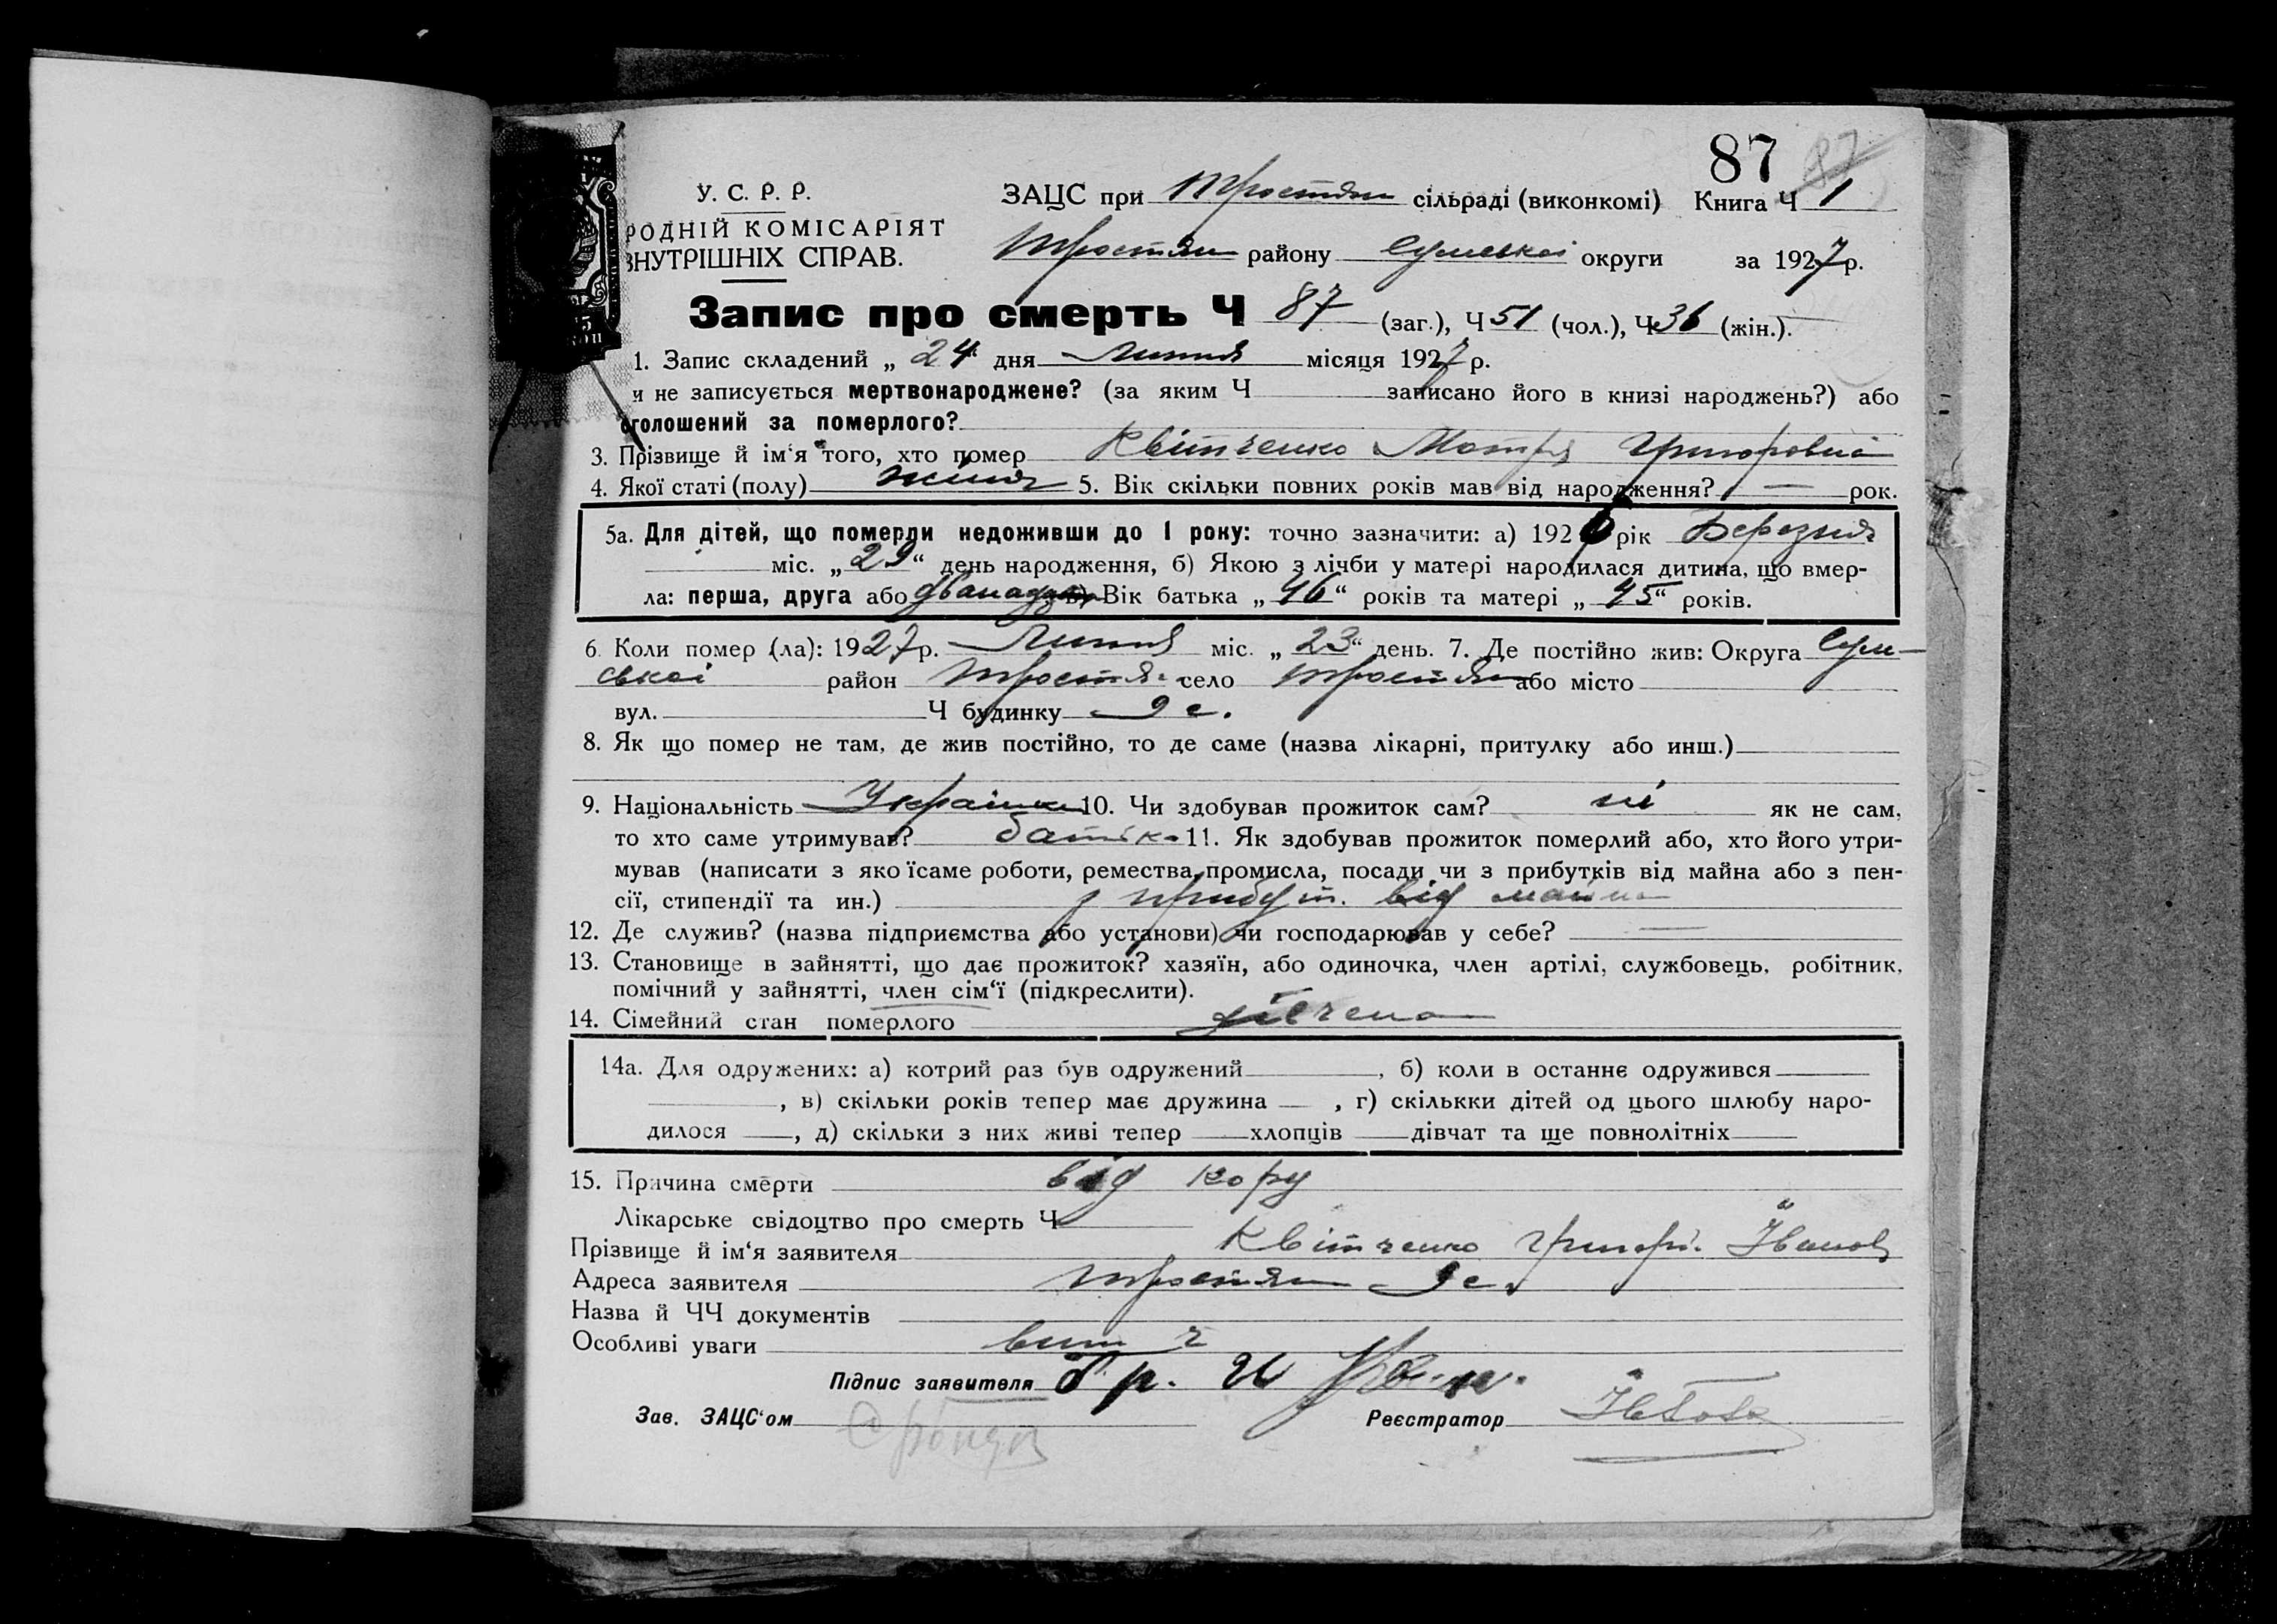 87 87
У. С. Р. Р. ЗАЦС при Тростян сільраді (виконкомі) Книга Ч 1
РОДНІЙ КОМІСАРІЯТ
ВНУТРІШНІХ СПРАВ. Тростян району Сумської округи за 1927 р.
Запис про смерть Ч 87 (заг.), Ч 51 (чол.), Ч 36 (жін.).
1. Запис складений „ 24 дня Липня місяця 1927 р.
и не записується мертвонароджене? (за яким Ч записано його в книзі народжень?) або
оголошений за померлого?
3. Прізвище й ім‘я того, хто помер Квітченко Мотря Григоровна
4. Якої статі (полу) жіноч 5. Вік скільки повних років мав від народження? — рок.
5а. Для дітей, що померли недоживши до 1 року: точно зазначити: а) 1926 рік Березня
міс. „ 29 “ день народження, б) Якою з лічби у матері народилася дитина, що вмер-
ла: перша, друга або в) Вік батька „ 46 “ років та матері „ 45 “ років.
6. Коли помер (ла): 1927 р. Липня міс. „ 23 “ день. 7. Де постійно жив: Округа Сум-
ської район Тростя. село Тростян або місто
вул. Ч будинку 9 с.
8. Як що помер не там, де жив постійно, то де саме (назва лікарні, притулку або инш.)
9. Національність Українка 10. Чи здобував прожиток сам? ні як не сам,
то хто саме утримував? батько 11. Як здобував прожиток померлий або, хто його утри-
мував (написати з яко їсаме роботи, ремества, промисла, посади чи з прибутків від майна або з пен-
сії, стипендії та ин.) з прибут. від майна
12. Де служив? (назва підприємства або установи) чи господарював у себе? —
13. Становище в зайнятті, що дає прожиток? хазяїн, або одиночка, член артілі, службовець, робітник,
помічний у зайнятті, член сім‘ї (підкреслити).
14. Сімейний стан померлого дівчена
14а. Для одружених: а) котрий раз був одружений , б) коли в останнє одружився
, в) скільки років тепер має дружина , г) скількки дітей од цього шлюбу наро-
дилося , д) скільки з них живі тепер хлопців дівчат та ще повнолітніх
15. Причина смерти від кору
Лікарське свідоцтво про смерть Ч
Прізвище й ім‘я заявителя Квітченко Григорі. Іванов
Адреса заявителя Тростян 9 с.
Назва й ЧЧ документів
Особливі уваги
Підпис заявителя
Зав. ЗАЦС‘ом Реєстратор